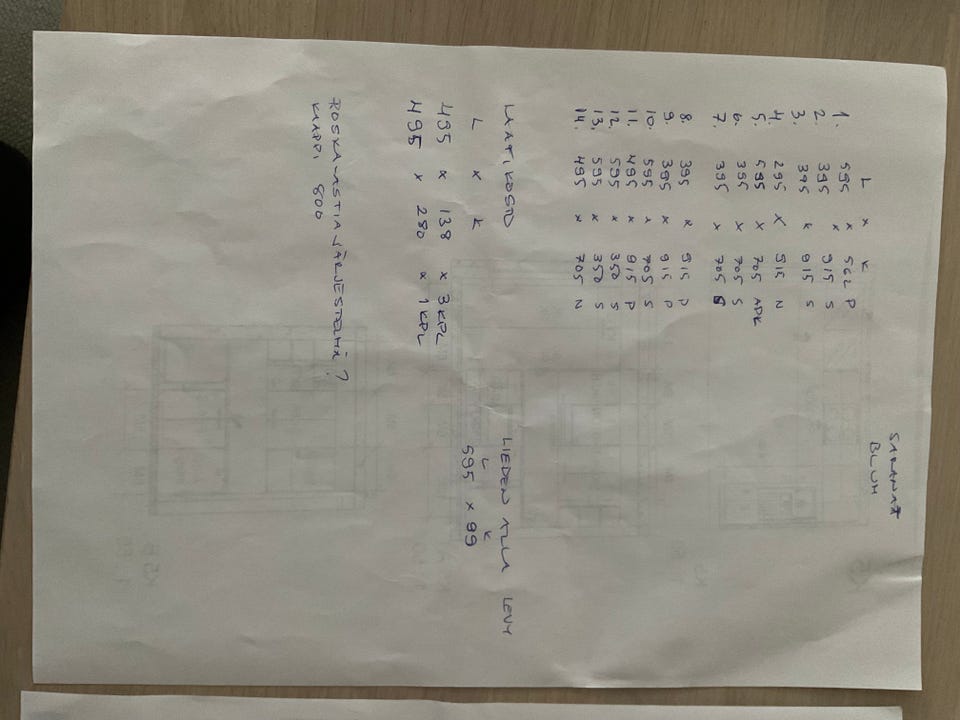 SARANAT
BLUM
L x K
1. 595 x 562 P
2. 395 x 915 S
3. 395 x 915 S
4. 295 x 915 N
5. 595 x 705 APK
6. 395 x 705 S
7. 395 x 705 S
8. 395 x 915 P
9. 395 x 915 P
10. 595 x 705 S
11. 495 x 915 P
12. 595 x 350 S
13. 595 x 350 S
14. 495 x 705 N
LAATIKOSTO
L x K
495 x 138 x 3 KPL
495 x 280 x 1 KPL
LIEDEN ALLA LEVY
L K
595 x 99
ROSKA-ASTIAJÄRJESTELMÄ?
KAAPPI 800